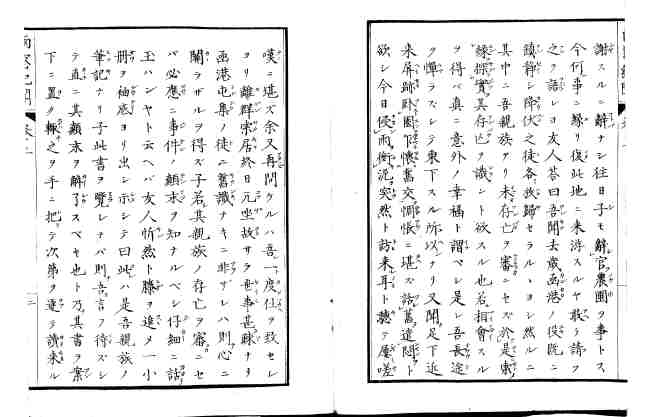 謝スルニ辭ナシ往日子モ辭官農圃ヲ事トス
今何事ニ縁リ復此地ニ来游スルヤ敢テ請フ
之ヲ語レヨ友人荅曰吾聞去歳函港ノ役既ニ
鎮静シ降伏之徒各放歸セラルヽヨシ然ルニ
其中ニ吾親族アリ未存亡ヲ審ニセズ於是
探實其存亡ヲ識ント欲スル也若相會スル
ヲ得バ真ニ意外ノ幸福ト謂ベシ是レ吾長途
ヲ憚ラズシテ東下スル所以ナリ又聞足下近
来屏跡卧園下懐舊交惆悵ニ堪ズ
欲シ今日侵雨衝泥突然ト訪来耳ト聴テ屢嗟
嘆ニ堪ズ余又再問ケルハ吾一度仕ヲ致セシ
ヨリ離群索居終日兀坐故サラ世事甚踈ナリ
函港屯集ノ徒ニ舊識ナキニ非ザレハ則心ニ
關ラザルヲ得ズ子若其親族ノ存亡ヲ審ニセ
バ必應ニ事件ノ顛末ヲ知ナルベシ仔細ニ話
玉ハンヤト云ヘバ友人忻然ト膝ヲ進メ一小
冊ヲ袖底ヨリ出シ示シテ曰此ハ是吾親族ノ
筆記ナリ子此書ヲ覽レナバ則吾言フ待ズシ
テ直ニ其顛末ヲ解了スベセ也ト乃其書ヲ案
下ニ置ク輙之ヲ手ニ把テ次第ヲ逐テ讀来ル